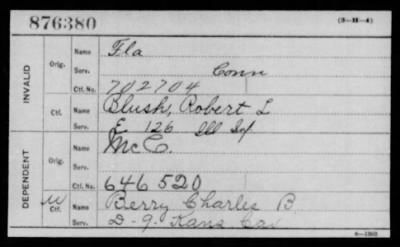 876380
(3-H-4)
INVALID
Orig.
Name Fla
Serv. Conn
Ctf. No. 702704
Ctf.
Name Blush, Robert L
Serv. E 126 Ill Inf
DEPENDENT
Orig.
Name McC.
Serv.
Ctf. No. 646520
W Ctf.
Name Berry Charles B
Serv. D-9. Kans Cav